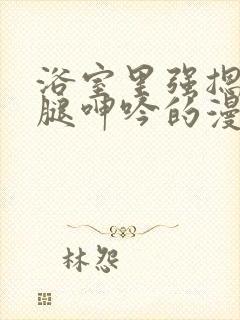 浴室里强摁
腿呻吟的漫
林怨